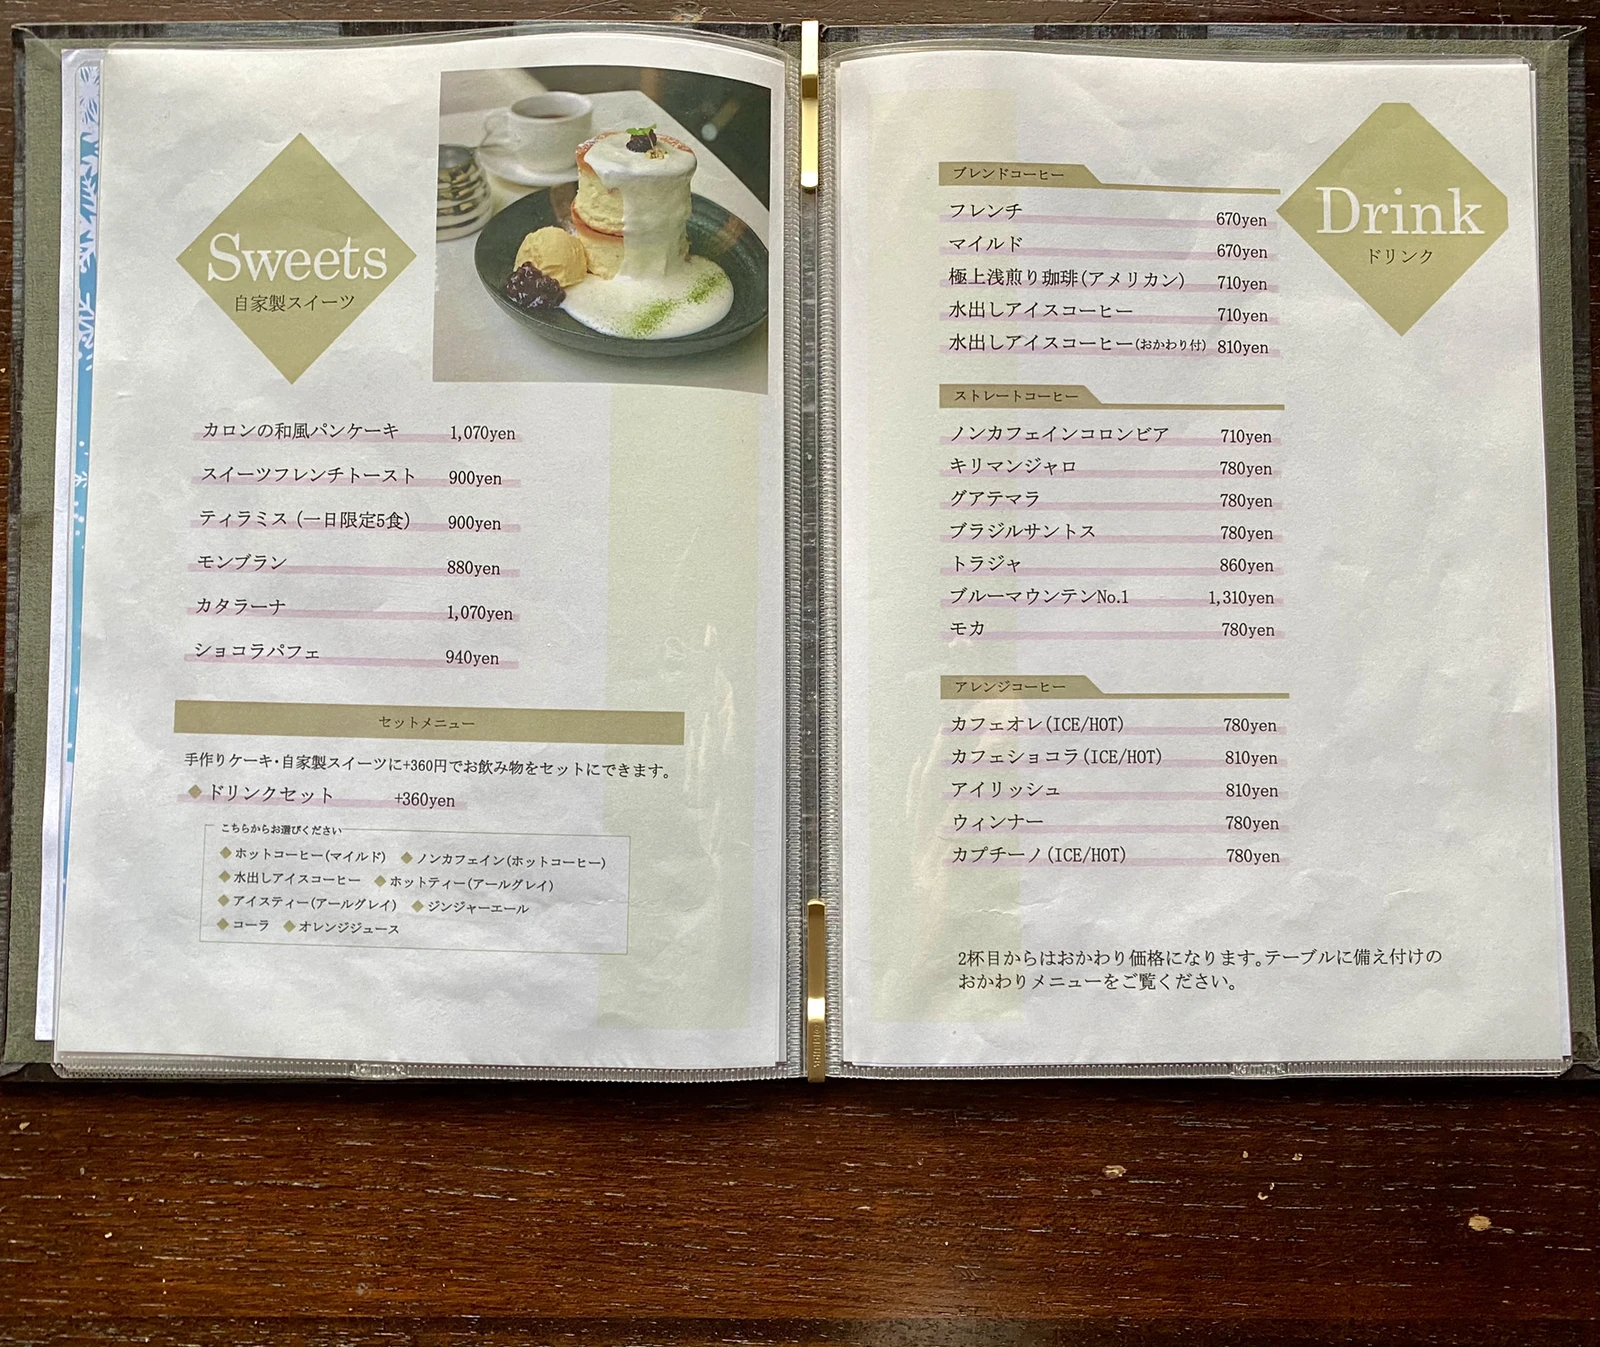 Sweets
自家製スイーツ
カロンの和風パンケーキ 1,070yen
スイーツフレンチトースト 900yen
ティラミス (一日限定5食) 900yen
モンブラン 880yen
カタラーナ 1,070yen
ショコラパフェ 940yen
セットメニュー
手作りケーキ・自家製スイーツに+360円でお飲み物をセットにできます。
◆ドリンクセット +360yen
こちらからお選びください
◆ホットコーヒー(マイルド) ◆ノンカフェイン(ホットコーヒー)
◆水出しアイスコーヒー ◆ホットティー(アールグレイ)
◆アイスティー(アールグレイ) ◆ジンジャーエール
◆コーラ ◆オレンジジュース
Drink
ドリンク
ブレンドコーヒー
フレンチ 670yen
マイルド 670yen
極上浅煎り珈琲(アメリカン) 710yen
水出しアイスコーヒー 710yen
水出しアイスコーヒー(おかわり付) 810yen
ストレートコーヒー
ノンカフェインコロンビア 710yen
キリマンジャロ 780yen
グアテマラ 780yen
ブラジルサントス 780yen
トラジャ 860yen
ブルーマウンテンNo.1 1,310yen
モカ 780yen
アレンジコーヒー
カフェオレ(ICE/HOT) 780yen
カフェショコラ(ICE/HOT) 810yen
アイリッシュ 810yen
ウィンナー 780yen
カプチーノ(ICE/HOT) 780yen
2杯目からはおかわり価格になります。テーブルに備え付けの
おかわりメニューをご覧ください。